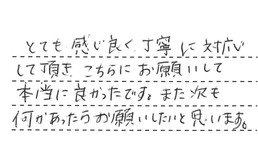 とても感じ良く丁寧に対応
して頂き、こちらにお願いして
本当に良かったです。また次も
何かあったらお願いしたいと思います。